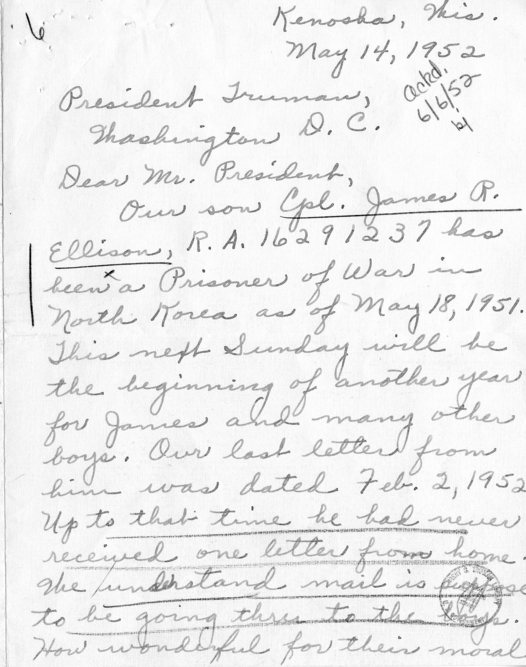 6
Kenosha, Wis.
May 14, 1952
ackd.
6/6/52
President Truman,
Washington D. C.
Dear Mr. President,
Our son Cpl. James R.
Ellison, R. A. 16291237 has
been a Prisoner of War in
North Korea as of May 18, 1951.
This next Sunday will be
the beginning of another year
for James and many other
boys. Our last letter from
him was dated Feb. 2, 1952
Up to that time he had never
received one letter from home.
We understand mail is suppose
to be going thru to the boys.
How wonderful for their moral